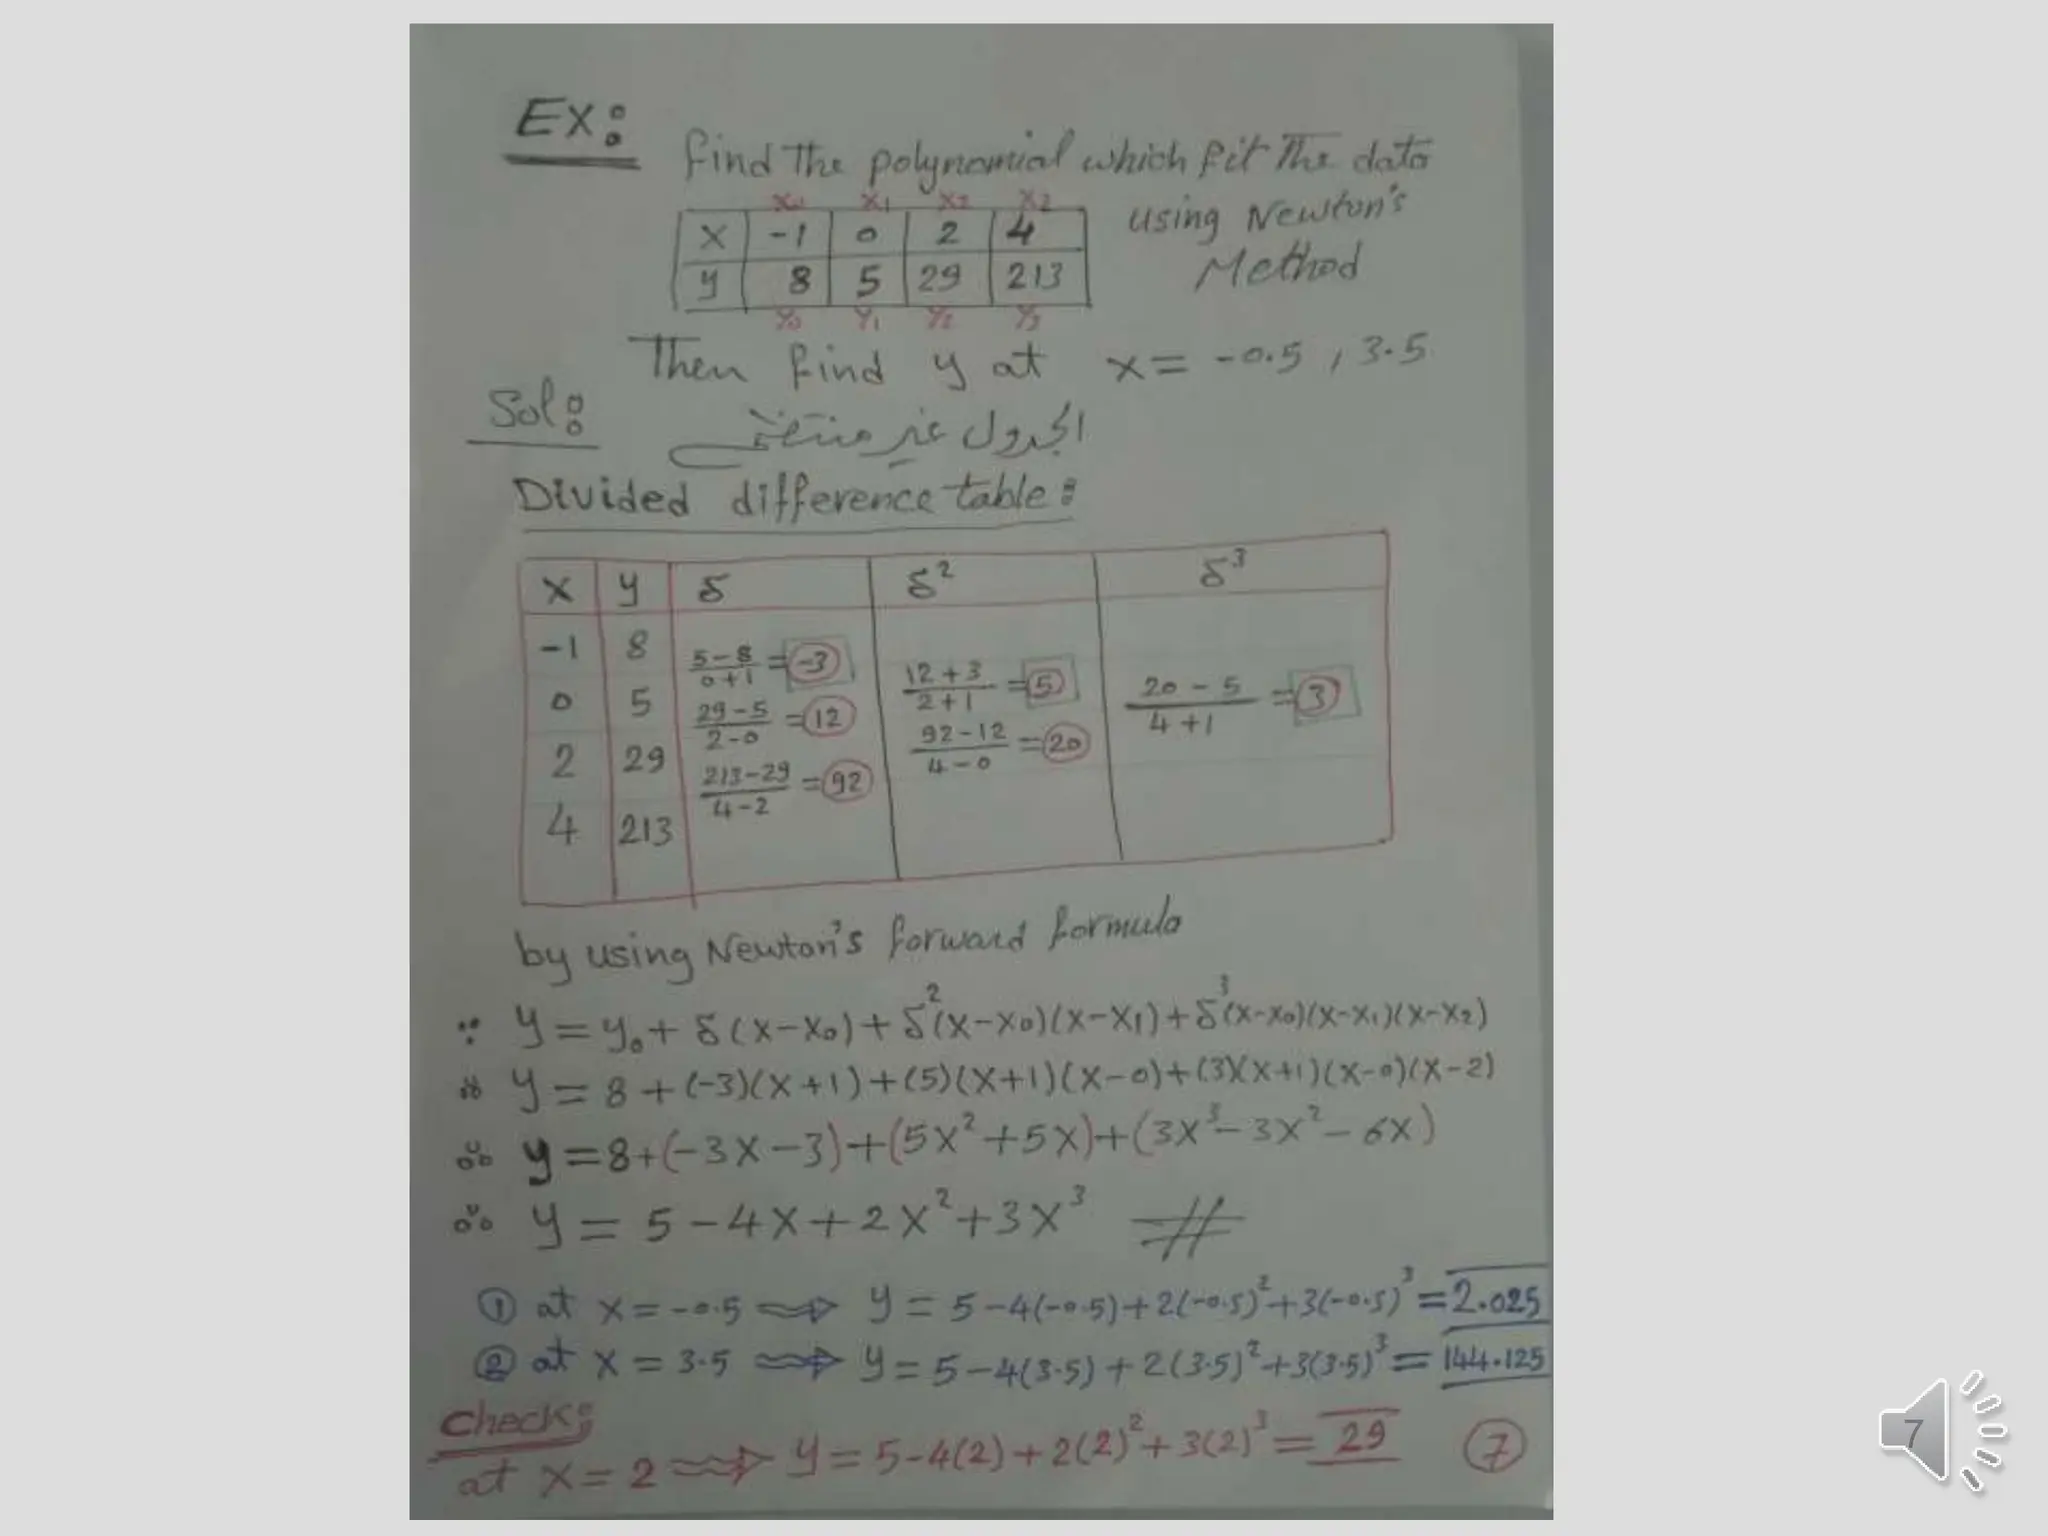 Ex:
Find The polynomial which fit The data
x₀ x₁ x₂ x₃
using Newton's
X -1 0 2 4
Method
y 8 5 29 213
y₀ y₁ y₂ y₃
Then find y at x = -0.5 , 3.5
Sol:
الجدول غير منتظم
Divided difference table:
x y δ δ² δ³
-1 8 (5-8)/(0+1) = -3 (12+3)/(2+1) = 5 (20-5)/(4+1) = 3
0 5 (29-5)/(2-0) = 12 (92-12)/(4-0) = 20
2 29 (213-29)/(4-2) = 92
4 213
by using Newton's forward formula
∵ y = y₀ + δ(x-x₀) + δ²(x-x₀)(x-x₁) + δ³(x-x₀)(x-x₁)(x-x₂)
∴ y = 8 + (-3)(x+1) + (5)(x+1)(x-0) + (3)(x+1)(x-0)(x-2)
∴ y = 8 + (-3x-3) + (5x²+5x) + (3x³-3x²-6x)
∴ y = 5 - 4x + 2x² + 3x³ #
① at x = -0.5 ⇒ y = 5-4(-0.5)+2(-0.5)²+3(-0.5)³ = 2.025
② at x = 3.5 ⇒ y = 5-4(3.5)+2(3.5)²+3(3.5)³ = 144.125
Check:
at x = 2 ⇒ y = 5-4(2)+2(2)²+3(2)³ = 29 ⑦
7